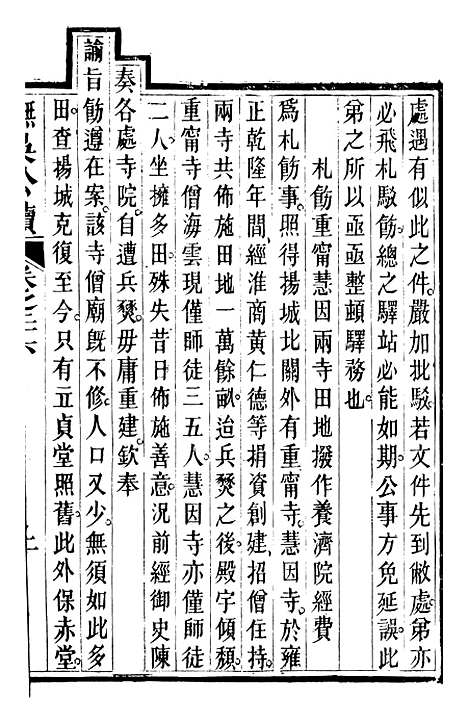 處遇有似此之件。嚴加批駁。若文件先到敝處。弟亦
必飛札駁飭。總之驛站必能如期。公事方免延誤。此
弟之所以亟亟整頓驛務也。
札飭重甯慧因兩寺田地撥作養濟院經費
爲札飭事。照得揚城北關外有重甯寺。慧因寺。於雍
正乾隆年間。經淮商黄仁德等捐資創建。招僧住持。
兩寺共佈施田地一萬餘畝。迨兵燹之後。殿宇傾頽。
重甯寺僧海雲現僅師徒三五人。慧因寺亦僅師徒
二人。坐擁多田。殊失昔日佈施善意。況前經御史陳
奏各處寺院。自遭兵燹。毋庸重建。欽奉
諭旨飭遵在案。該寺僧廟旣不修。人口又少。無須如此多
田。查揚城克復至今。只有立貞堂照舊。此外保赤堂。
撫吳公牘
卷之三十六